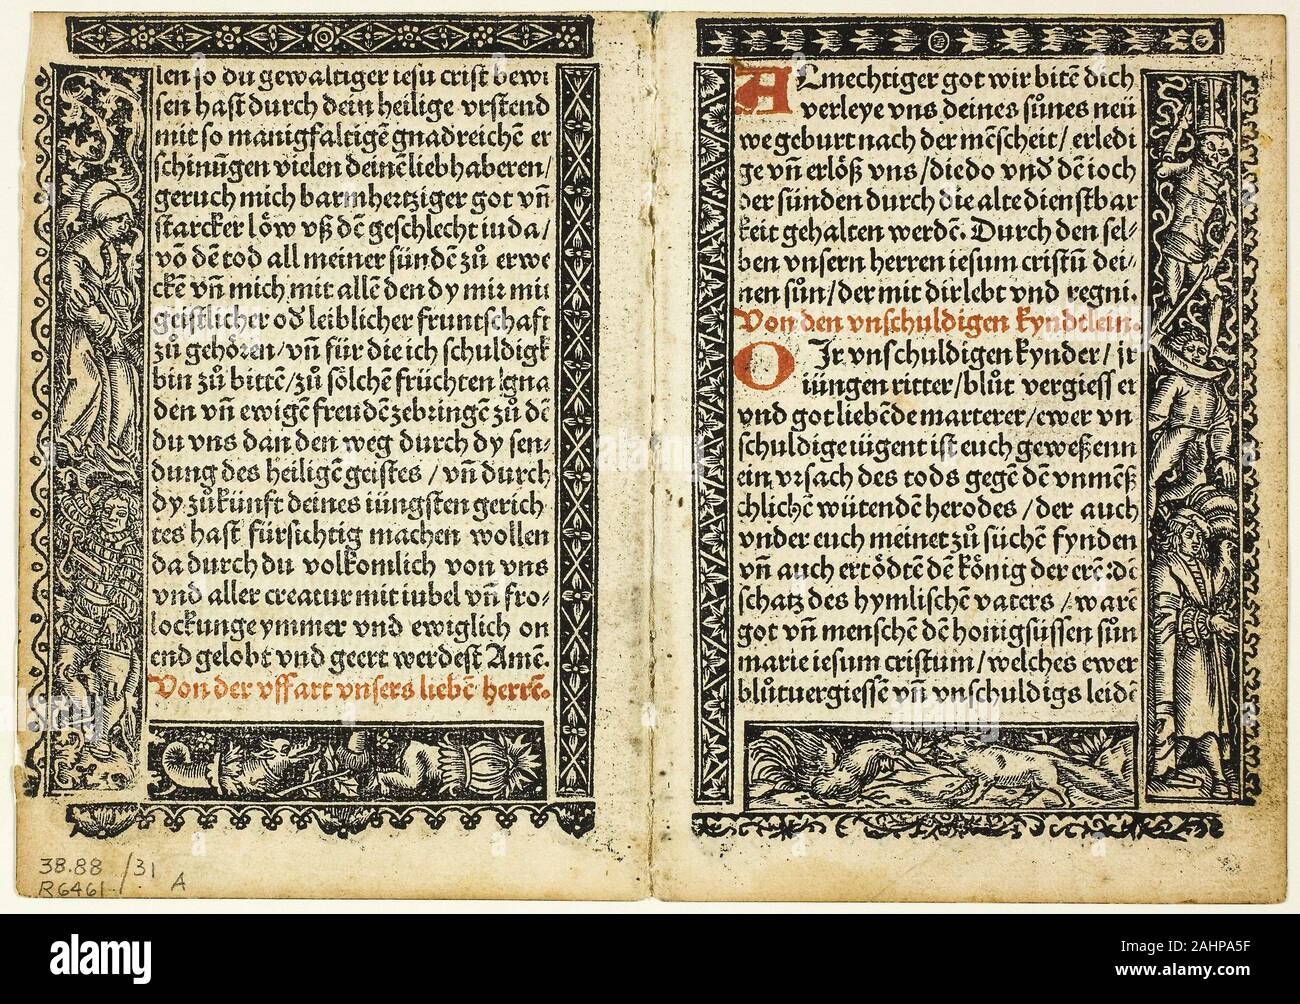 len so du gewaltiger iesu crist bewi
sen hast durch dein heilige vrstend
mit so manigfaltigē gnadreichē er
schinūgen vielen deinē liebhaberen/
geruch mich barmhertziger got vn̄
starcker löw vß dē geschlecht iuda/
vō dē tod all meiner sündē zů erwe
ckē vn̄ mich mit allē den dy mir mit
geistlicher od leiblicher fruntschaft
zů gehören/vn̄ für die ich schuldigk
bin zů bittē/zů sölchē früchten gna
den vn̄ ewigē freudē zebringē zů dē
du vns dan den weg durch dy sen-
dung des heiligē geistes/vn̄ durch
dy zůkünft deines iüngsten gerich
tes hast fürsichtig machen wollen
da durch du volkomlich von vns
vnd aller creatur mit iubel vn̄ fro-
lockunge ymmer vnd ewiglich on
end gelobt vnd geert werdest Amē.
Von der vffart vnsers liebē herrē.
38.88 /31 A
R6461
ALmechtiger got wir bitē dich
verleye vns deines sůnes neü
we geburt nach der mēscheit/erledi
ge vn̄ erlöß vns/die do vnd dē ioch
der sünden durch die alte dienstbar
keit gehalten werdē. Durch den sel-
ben vnsern herren iesum cristū dei-
nen sůn/der mit dir lebt vnd regni.
Von den vnschuldigen kyndelein.
OIr vnschuldigen kynder/ir
iüngen ritter/blůt vergiesser
vnd got liebēde marterer/ewer vn
schuldige iügent ist euch geweßenn
ein vrsach des tods gegē dē vnmēß
chlichē wütendē herodes/der auch
vnder euch meinet zů süchē fynden
vn̄ auch ertödtē dē könig der erē:dē
schatz des hymlischē vaters/warē
got vn̄ menschē dē honigsüssen sůn
marie iesum cristum/welches ewer
blůtuergiessē vn̄ vnschuldigs leidē
alamy
Image ID: 2AHPA5F
www.alamy.com